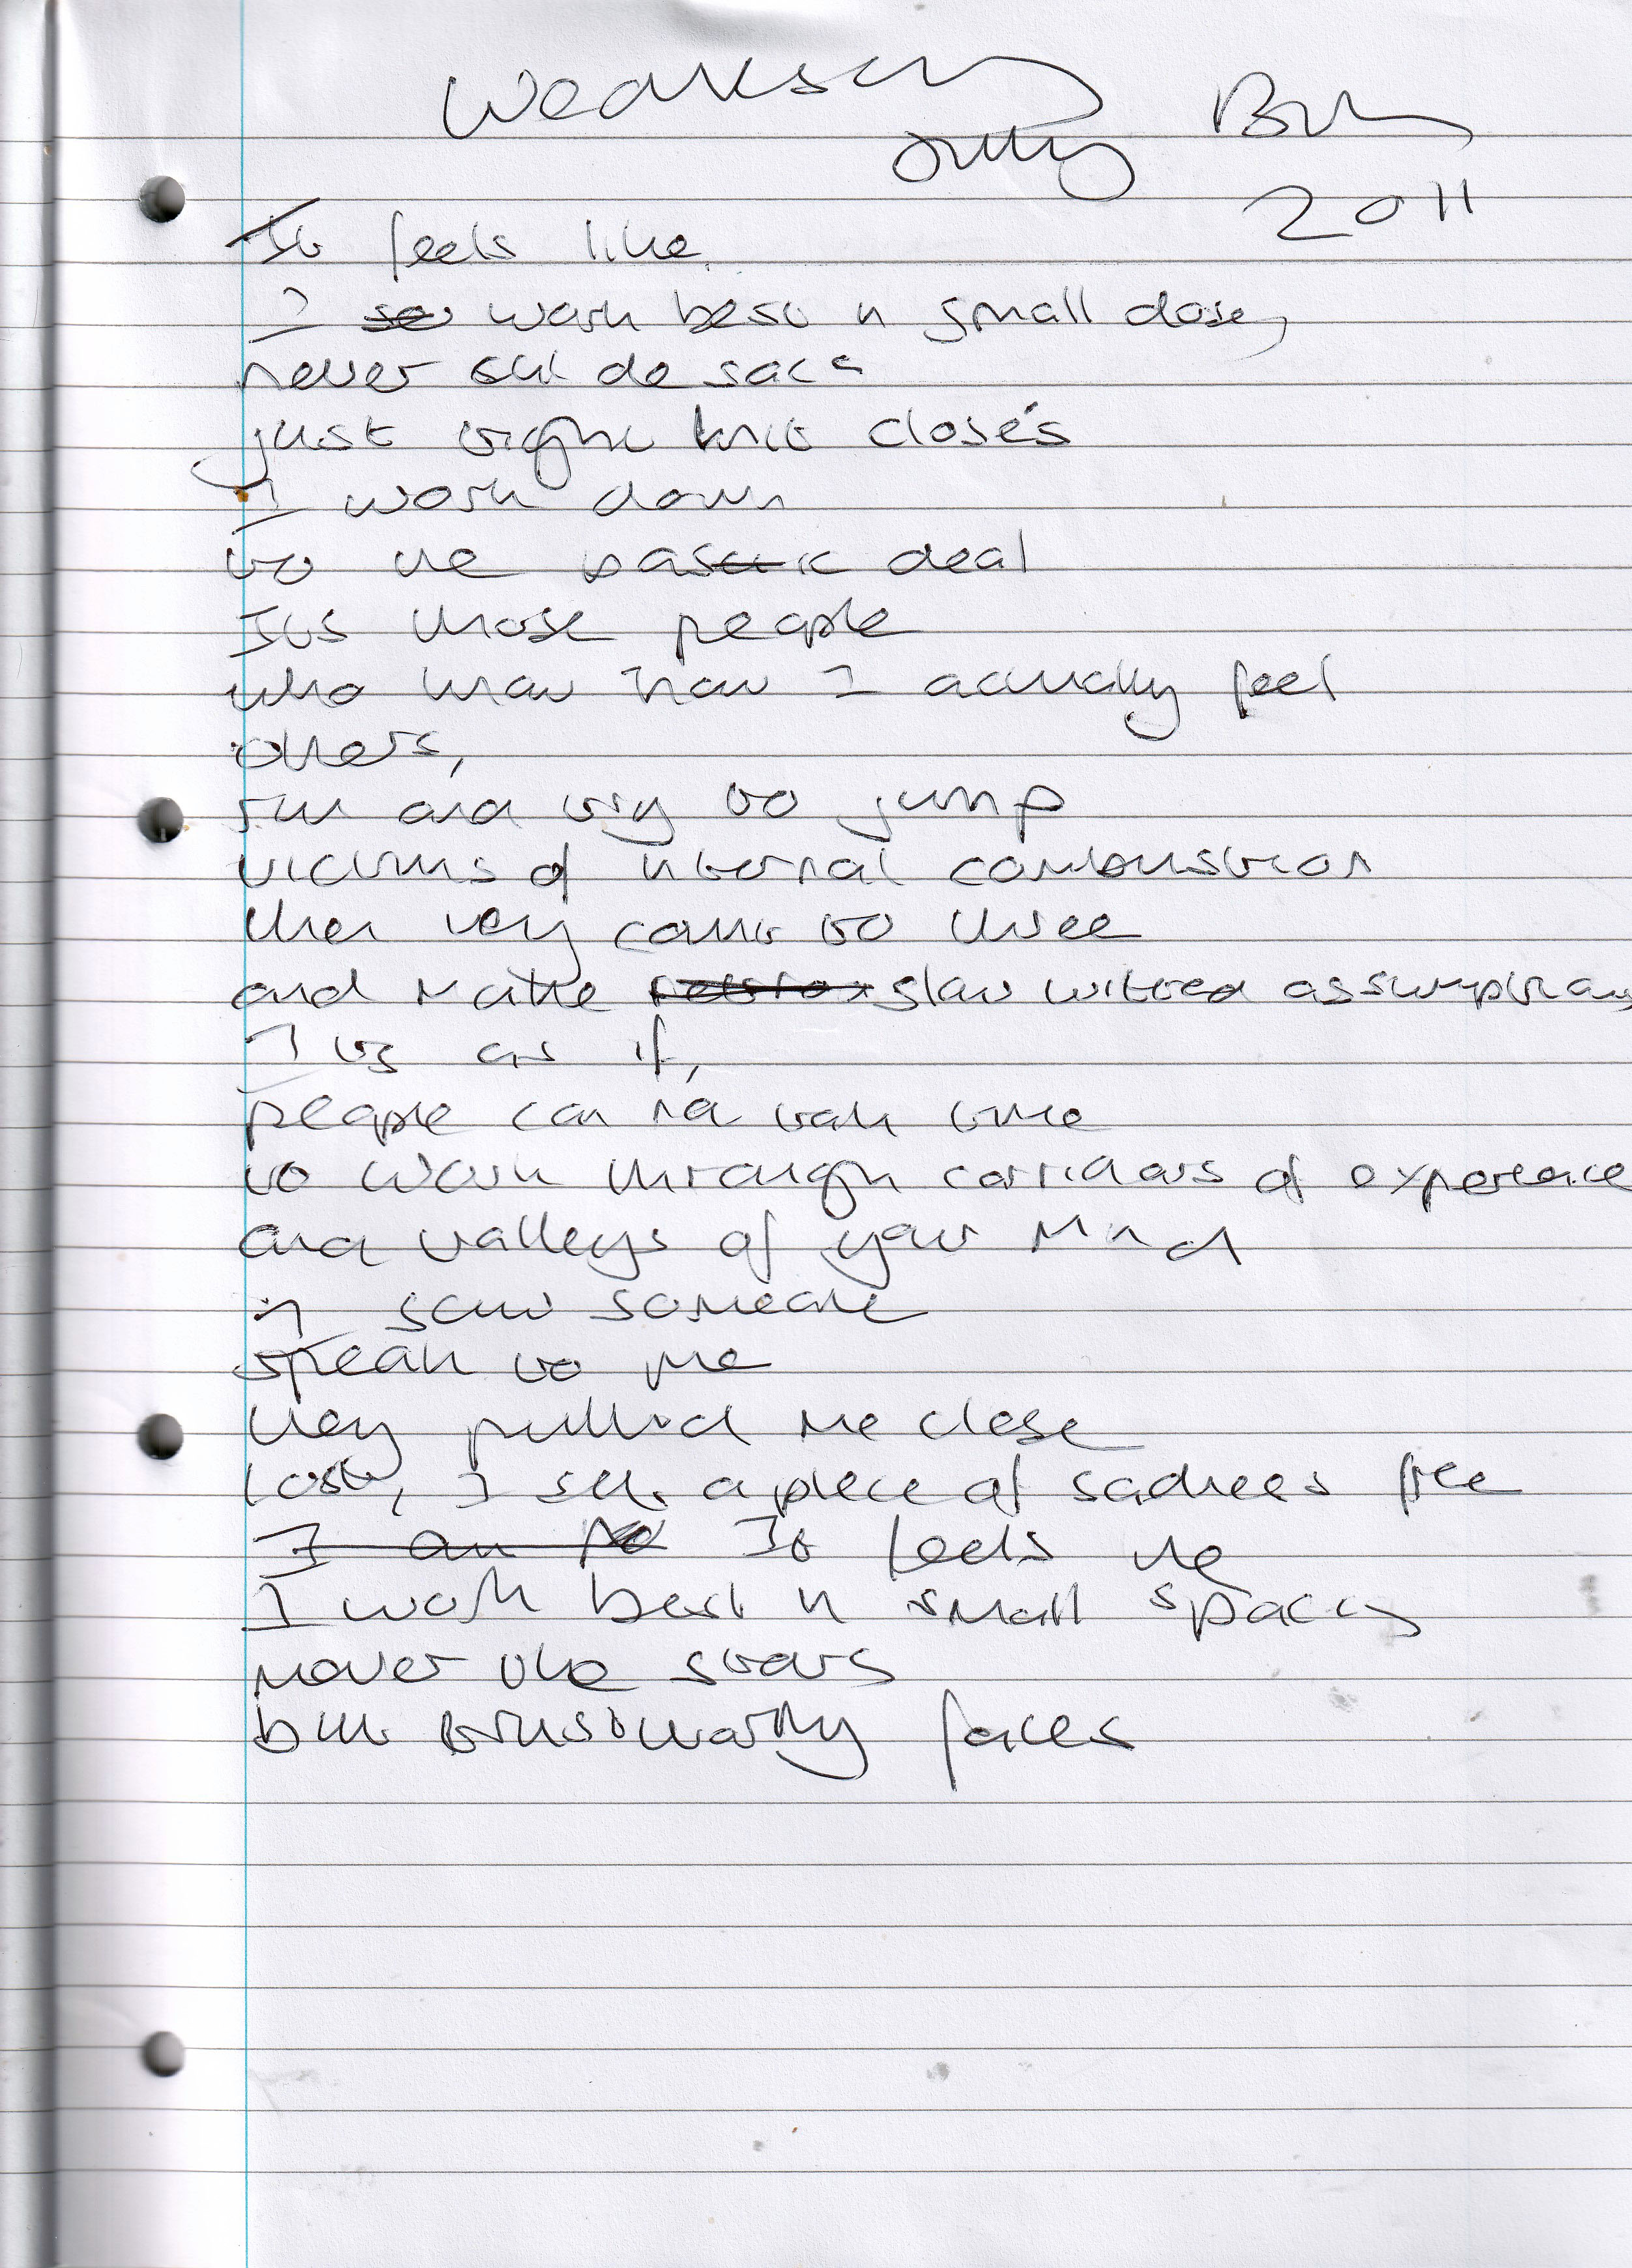 Wednesday
July
2011
It feels like
I work best in small doses
never cul de sacs
just tight knit closes
I work down
to the basic deal
Its those people
who know how I actually feel
others,
run and try to jump
victims of internal combustion
then they count to three
and make slow witted assumptions
Its as if,
people can not take time
to work through corridors of experience
and valleys of your mind
I saw someone
speak to me
they pulled me close
lost, I set a piece of sadness free
It feels like
I work best in small spaces
never the stars
but trustworthy faces